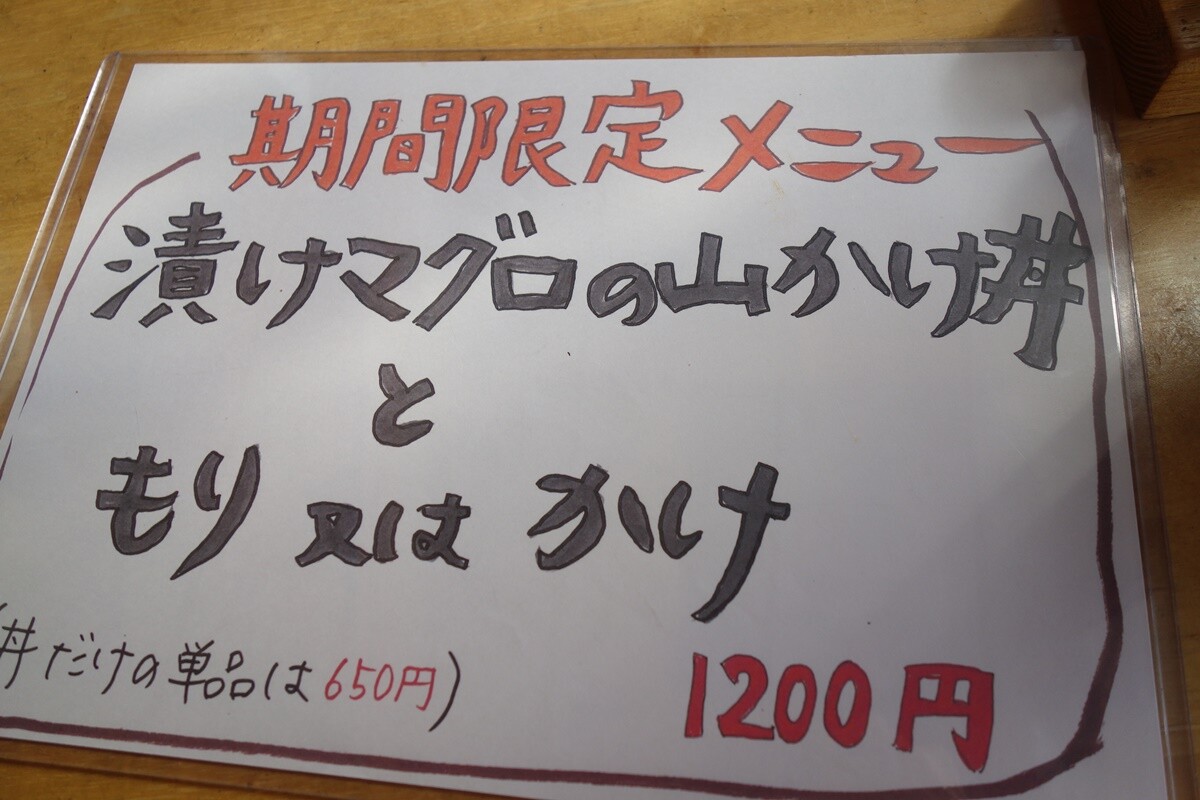 期間限定メニュー
漬けマグロの山かけ丼
と
もり 又は かけ
(丼だけの単品は650円)
1200円